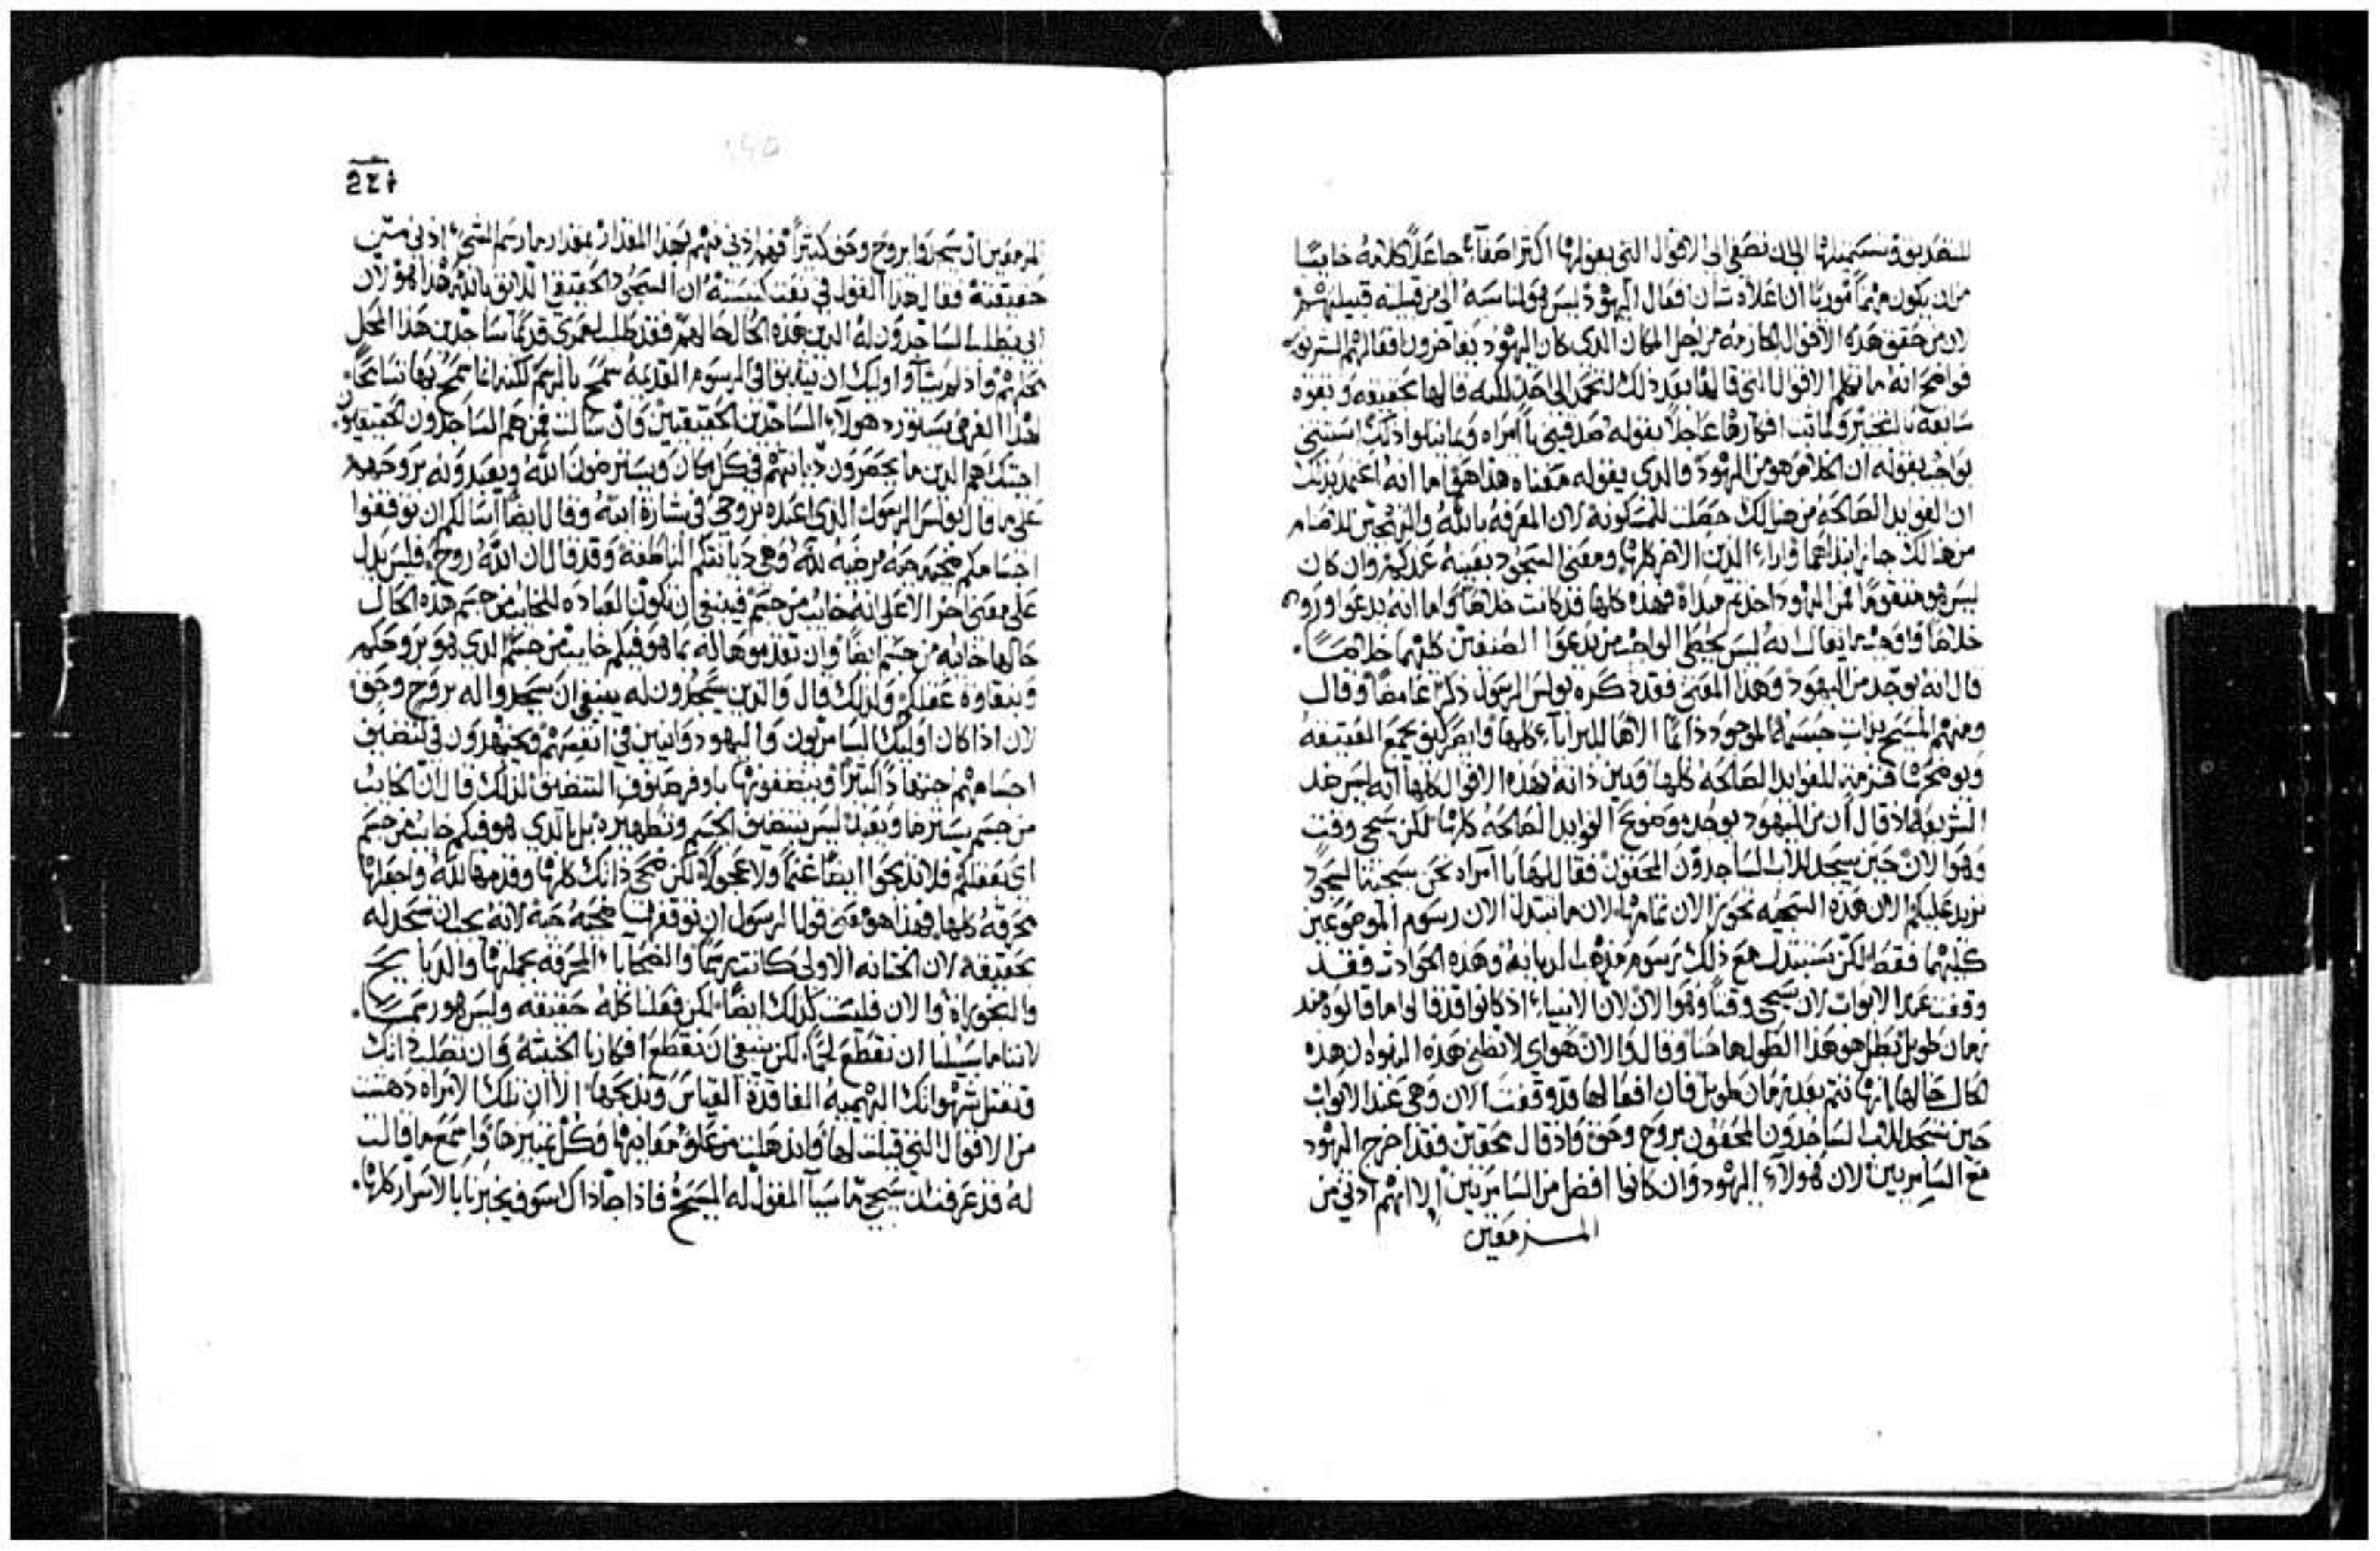 للتصديق وتستميلها الى ان تصغى الى الاقوال التي يقولها اكثر اصغآء جاعلاً كلامه خايبًا
من ان يكون متهماً مورياً ان علاه شان افعال اليهود ليس هو لمناسبه الى من قبلته قبيلتهم
لان من حقق هذه الاقوال كارمه من اجل المكان الذي كان اليهود يفاخرون افعالهم الشريفه
فواضح انه ما تكلم الاقوال التي قالها بعد ذلك لتحمد الى احد لكنه قالها بحقيقه وبقوه
سابقه بالتخبير ولما ثبت افكارها عاجلاً بقوله صدقيني يا امراه وما يتلوا ذلك استثنى
بواجب بقوله ان الخلاص هو من اليهود فالذي يقوله معناه هذا هو اما انه اعتمد بذلك
ان الفوايد الصالحه من هنالك حصلت للمسكونه لان المعرفه بالله والتهجين للاصنام
من هنالك جاز ابتداهما وارآء الدين الاخر كلها ومعنى السجود بعينه عندكم وان كان
ليس هو متقوماً فمن اليهود اخذتم مبداه فهذه كلها قد كانت خلاصاً واما انه يدعوا وروده
خلاصاً واوجب ما يقال انه ليس يخطى الواحد من يدعوا الصنفين كليهما خلاصًا.
قال انه يوجد من اليهود وهذا المعنى فقد ذكره بولس الرسول ذكراً غامضاً وقال
ومنهم المسيح بذات جسمه الموجود دائماً الاهاً للبرايآء كلها وابصر كيف يجمع العتيقه
ويوضحها قنزمه للفوايد الصالحه كلها ويبين ذاته بهذه الاقوال كلها انه ليس ضد
الشريعه اذ قال ان من اليهود يوجد وضوح الفوايد الصالحه كلها لكن سيجي وقت
وهو الان حين يسجد للاب الساجدون المحقون فقال لها يا امراه نحن سجيتنا ليسجود
نزيد عليكم الان هذه السجيه تحوزها الان تمامها لان ما تتبدل الان رسوم الموضوعين
كليهما فقط لكن ستبتدل مع ذلك رسوم مذهب الديانه وهذه الحوادث فقد
وقفت عند الابواب لان سيجي وقتاً وهو الان لان الانبياء اذ كانوا قد قالوا ما قالوه منذ
زمان طويل بطل هو هذا القول هاهنا وقال والان هو اي لا تظني هذه النبوه ان هذه
الحال حالها انها تتم بعد زمان طويل فان افعالها قد وقفت الان وهي عند الابواب
حين تسجد للاب الساجدون المحقون بروح وحق واذ قال محقين فقد اخرج اليهود
مع السامريين لان هولاء اليهود وان كانوا افضل من السامريين الا انهم ادنى من
المزمعين
المزمعين ان يسجدوا بروح وحق كثيراً فهم ادنى منهم بهذا المقدار بمقدار ما رسم الشى ادنى من
حقيقته فقال هذا القول في نعت كنيسته ان السجود الحقيقي اللايق بالله هذا هو لان
الاب يطلب الساجدون له الذين هذه الحال حالهم فقد طلب لعمري قديماً ساجدين هذا المحل
محلهم واذ لم يشآوا اوليك ان يثبتوا في الرسوم القديمه سمح بالرسم لكنه انما سمح بها تسامحاً
لهذا الغرض يستورد هولآء الساجدين الحقيقيين وان سالت فمن هم الساجدون الحقيقيون.
اجبتك هم الذين ما يحصرون ديانتهم في كل مكان ويسترضون الله ويعبدونه بروحهم
على ما قال بولس الرسول الذي اعبده بروحي في بشارة ابنه وقال ايضاً اسالكم ان توقفوا
اجسامكم ضحيه حيه مرضيه لله وهي ديانتكم الناطقه وقد قال ان الله روح فليس يدل
على معنى اخر الا على انه خايب من جسم فينبغي ان تكون العباده للخايب من جسم هذه الحال
حالها خايبه من جسم ايضاً وان تقدموها له بما هو فيكم خايب من جسم الذي هو بروحكم
وبنقاوة عقلكم ولذلك قال والذين يسجدون له ينبغي ان يسجدوا له بروح وحق
لان اذا كان اوليك السامريون واليهود وانين في انفسهم ويجتهدون في تنضيف
اجسامهم اجتهاداً كثيراً وينضفونها باوفر صنوف التنضيف لذلك قال ان الخايب
من جسم يسترضا ويعبد ليس بتنضيف الجسم وتطهيره بل بالذي هو فيكم خايب من جسم
اي بعقلكم فلا تذبحوا ايضاً غنماً ولا عجولاً لكن ضحي ذاتك كلها وقدمها لله واجعلها
محرقه كلها فهذا هو معنى قول الرسول ان توقفوها ضحيه حيه لانه يجب ان تسجد له
بحقيقه لان الختانه الاولى كانت رسماً والضحايآء المحرقه بجملتها والذبايح
والبخورات واما الان فليست كذلك ايضاً لكن فعلنا كله حقيقه وليس هو رسمًا.
لاننا ما سبيلنا ان نقطع لحماً لكن ينبغي ان نقطع افكارنا الخبيثه وان نصلب ذاتك
وتقتل شهواتك البهيميه الفاقدة القياس وتذبحها الا ان تلك الامراه دهشت
من الاقوال التي قيلت لها واندهلت من علو معانيها وكل تمييزها واسمع ما قالت
له قد عرفت ان سيجي ماسيآ المقول له المسيح فاذا جآ ذاك سوف يخبرنا بالاسرار كلها.